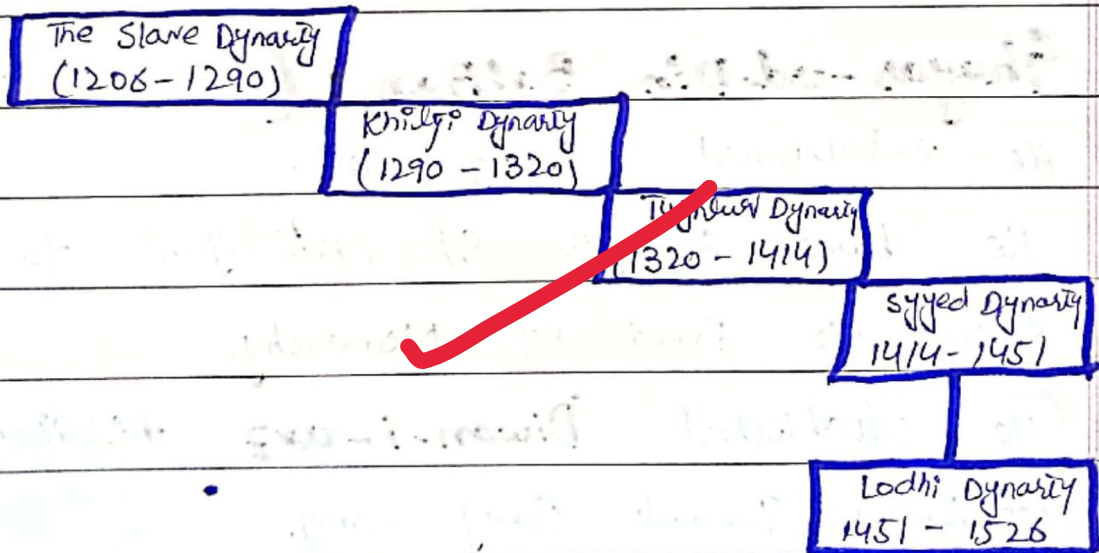 The Slave Dynasty
(1206 - 1290)
Khilji Dynasty
(1290 - 1320)
Dynasty
(1320 - 1414)
Syyed Dynasty
1414 - 1451
Lodhi Dynasty
1451 - 1526